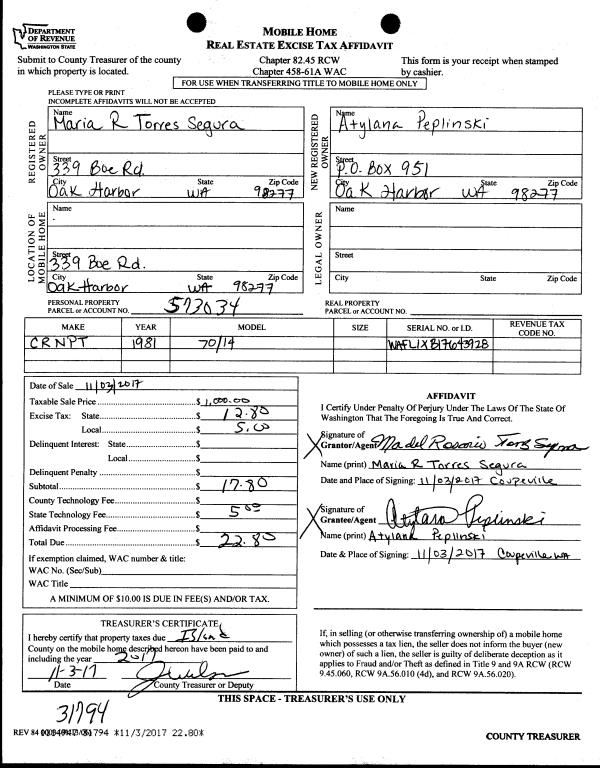 DEPARTMENT OF REVENUE
WASHINGTON STATE
MOBILE HOME
REAL ESTATE EXCISE TAX AFFIDAVIT
Submit to County Treasurer of the county in which property is located.
Chapter 82.45 RCW
Chapter 458-61A WAC
This form is your receipt when stamped by cashier.
FOR USE WHEN TRANSFERRING TITLE TO MOBILE HOME ONLY
PLEASE TYPE OR PRINT
INCOMPLETE AFFIDAVITS WILL NOT BE ACCEPTED
REGISTERED OWNER
Name
Maria R Torres Segura
Street
339 Boe Rd.
City State Zip Code
Oak Harbor WA 98277
NEW REGISTERED OWNER
Name
Atylana Peplinski
Street
P.O. Box 951
City State Zip Code
Oak Harbor WA 98277
LOCATION OF MOBILE HOME
Name
Street
339 Boe Rd.
City State Zip Code
Oak Harbor WA 98277
LEGAL OWNER
Name
Street
City State Zip Code
PERSONAL PROPERTY
PARCEL or ACCOUNT NO. 573034
REAL PROPERTY
PARCEL or ACCOUNT NO.
MAKE YEAR MODEL SIZE SERIAL NO. or I.D. REVENUE TAX CODE NO.
CRNPT 1981 70/14 WAFL1XB17643928
Date of Sale 11/03/2017
Taxable Sale Price $ 1,000.00
Excise Tax: State $ 12.80
Local $ 5.00
Delinquent Interest: State $
Local $
Delinquent Penalty $
Subtotal $ 17.80
County Technology Fee $
State Technology Fee $ 5.00
Affidavit Processing Fee $
Total Due $ 22.80
If exemption claimed, WAC number & title:
WAC No. (Sec/Sub)
WAC Title
A MINIMUM OF $10.00 IS DUE IN FEE(S) AND/OR TAX.
AFFIDAVIT
I Certify Under Penalty Of Perjury Under The Laws Of The State Of Washington That The Foregoing Is True And Correct.
X Signature of Grantor/Agent
Name (print) Maria R Torres Segura
Date and Place of Signing: 11/03/2017 Coupeville
X Signature of Grantee/Agent Atylana Peplinski
Name (print) Atylana Peplinski
Date & Place of Signing: 11/03/2017 Coupeville WA
TREASURER'S CERTIFICATE
I hereby certify that property taxes due Island
County on the mobile home described hereon have been paid to and
including the year 2017
11-3-17
Date County Treasurer or Deputy
If, in selling (or otherwise transferring ownership of) a mobile home which possesses a tax lien, the seller does not inform the buyer (new owner) of such a lien, the seller is guilty of deliberate deception as it applies to Fraud and/or Theft as defined in Title 9 and 9A RCW (RCW 9.45.060, RCW 9A.56.010 (4d), and RCW 9A.56.020).
THIS SPACE - TREASURER'S USE ONLY
31794
REV 84 31794 *11/3/2017 22.80*
COUNTY TREASURER